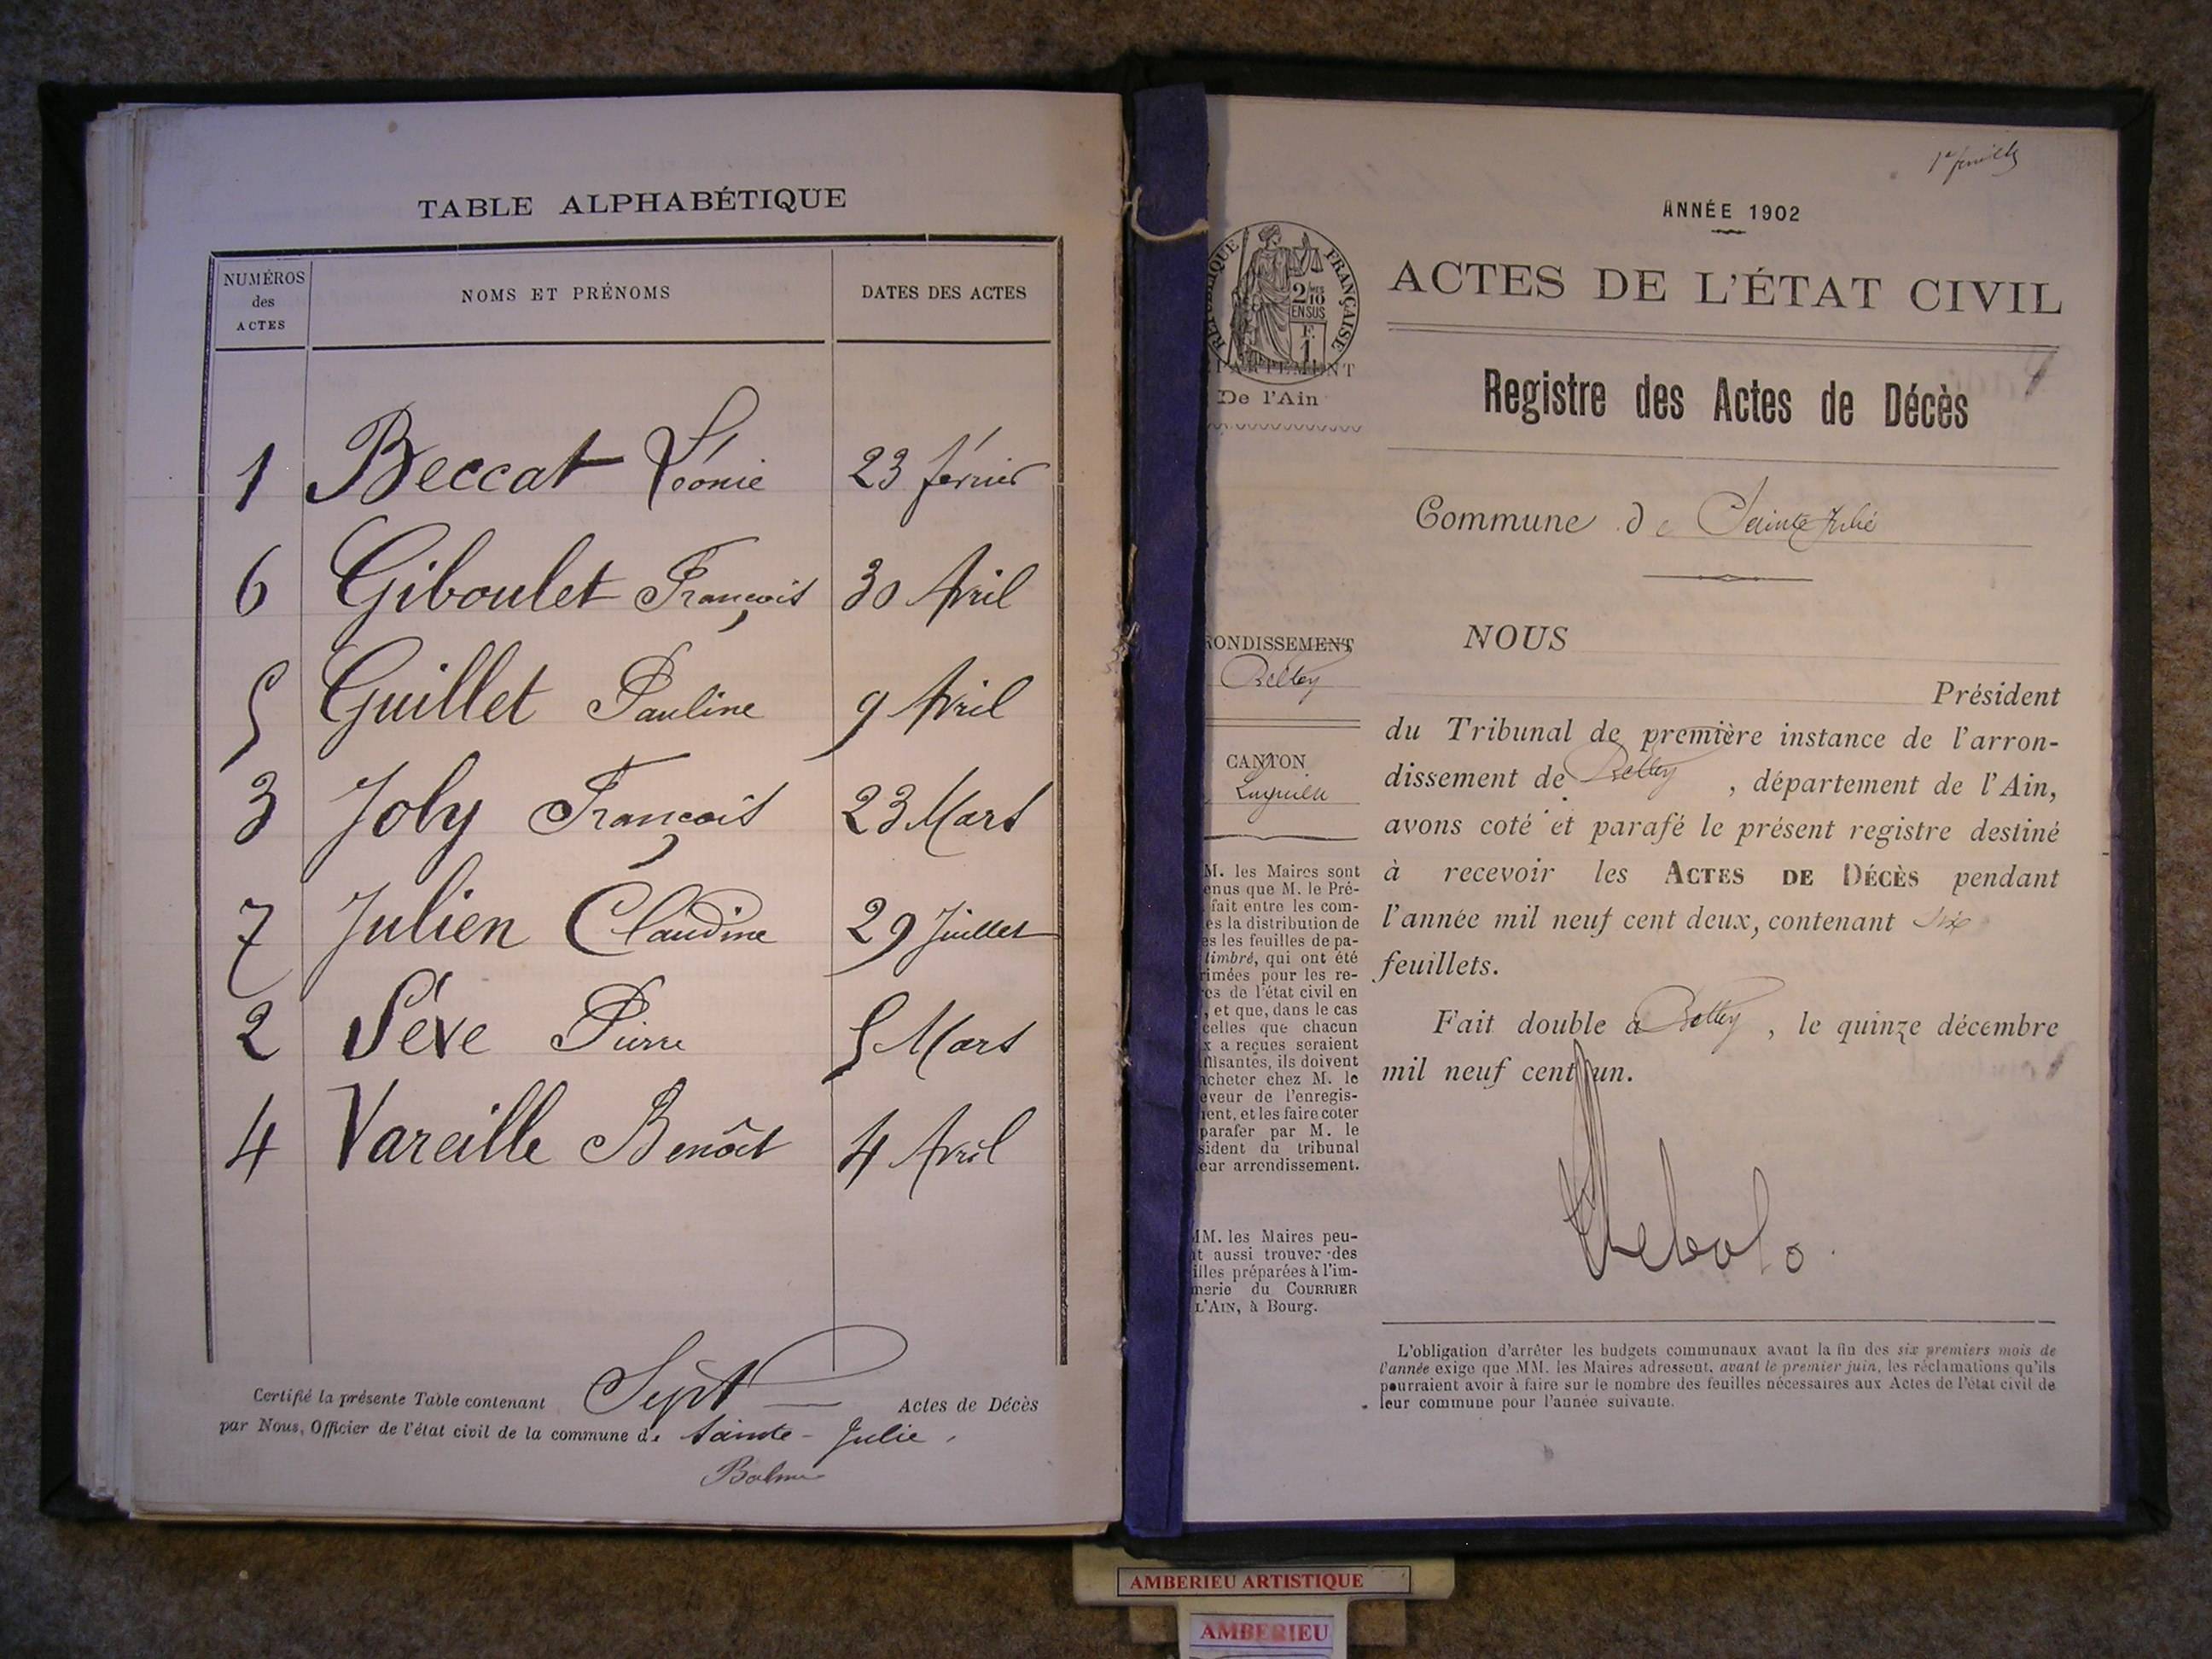 TABLE ALPHABÉTIQUE
NUMÉROS des ACTES
NOMS ET PRÉNOMS
DATES DES ACTES
1 Beccat Léonie 23 février
6 Giboulet François 30 Avril
5 Guillet Pauline 9 Avril
3 Joly François 23 Mars
7 Julien Claudine 29 Juillet
2 Sève Pierre 5 Mars
4 Vareille Benoît 4 Avril
Certifié la présente Table contenant Sept Actes de Décès
par Nous, Officier de l'état civil de la commune de Sainte-Julie,
1er feuillet
ANNÉE 1902
ACTES DE L'ÉTAT CIVIL
Registre des Actes de Décès
Commune de Sainte Julie
NOUS
Président
du Tribunal de première instance de l'arron-
dissement de Belley, département de l'Ain,
avons coté et parafé le présent registre destiné
à recevoir les ACTES DE DÉCÈS pendant
l'année mil neuf cent deux, contenant six
feuillets.
Fait double à Belley, le quinze décembre
mil neuf cent un.
L'obligation d'arrêter les budgets communaux avant la fin des six premiers mois de
l'année exige que MM. les Maires adressent, avant le premier juin, les réclamations qu'ils
pourraient avoir à faire sur le nombre des feuilles nécessaires aux Actes de l'état civil de
leur commune pour l'année suivante.
FRANÇAISE
2/10
EN SUS
F.
1
De l'Ain
RONDISSEMENT
Belley
CANTON
Lagnieu
M. les Maires sont
enus que M. le Pré-
fait entre les com-
es la distribution de
es les feuilles de pa-
timbré, qui ont été
rimées pour les re-
res de l'état civil en
, et que, dans le cas
celles que chacun
x a reçues seraient
ffisantes, ils doivent
acheter chez M. le
eveur de l'enregis-
ent, et les faire coter
parafer par M. le
sident du tribunal
eur arrondissement.
MM. les Maires peu-
t aussi trouver des
illes préparées à l'im-
merie du COURRIER
L'AIN, à Bourg.
AMBERIEU ARTISTIQUE
AMBERIEU